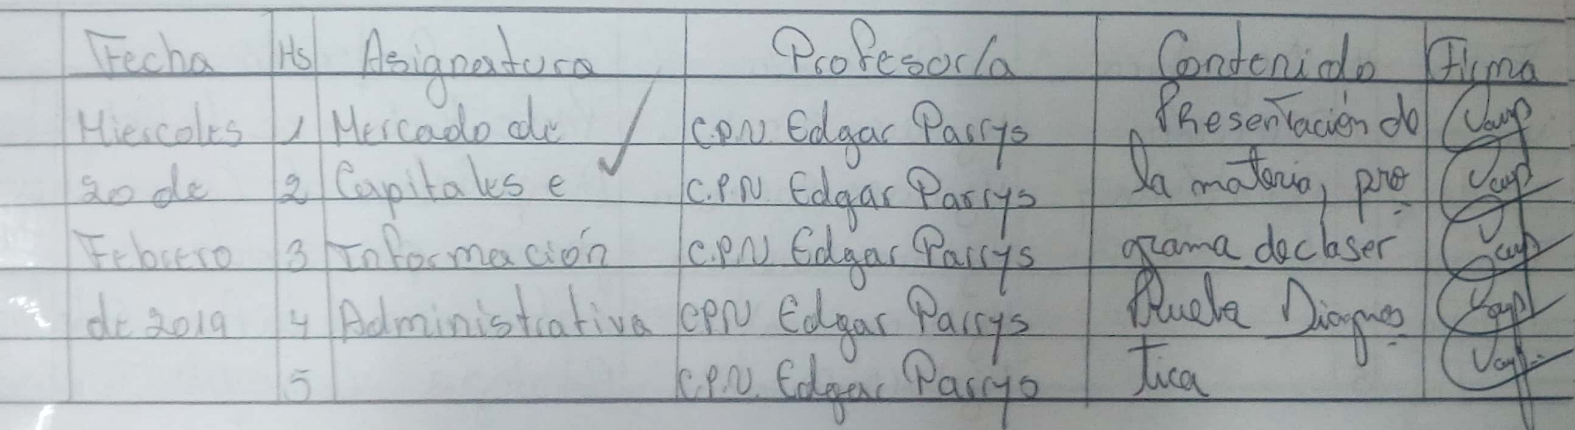 Fecha Hs Asignatura Profesor/a Contenido Firma
Miercoles 1 Mercado de C.P.N. Edgar Parrys Presentación de
20 de 2 Capitales e C.P.N. Edgar Parrys la materia, pro
Febrero 3 Información C.P.N Edgar Parrys grama de clases
de 2019 4 Administrativa CPN Edgar Parrys Prueba Diagnos
5 C.P.N. Edgar Parrys tica